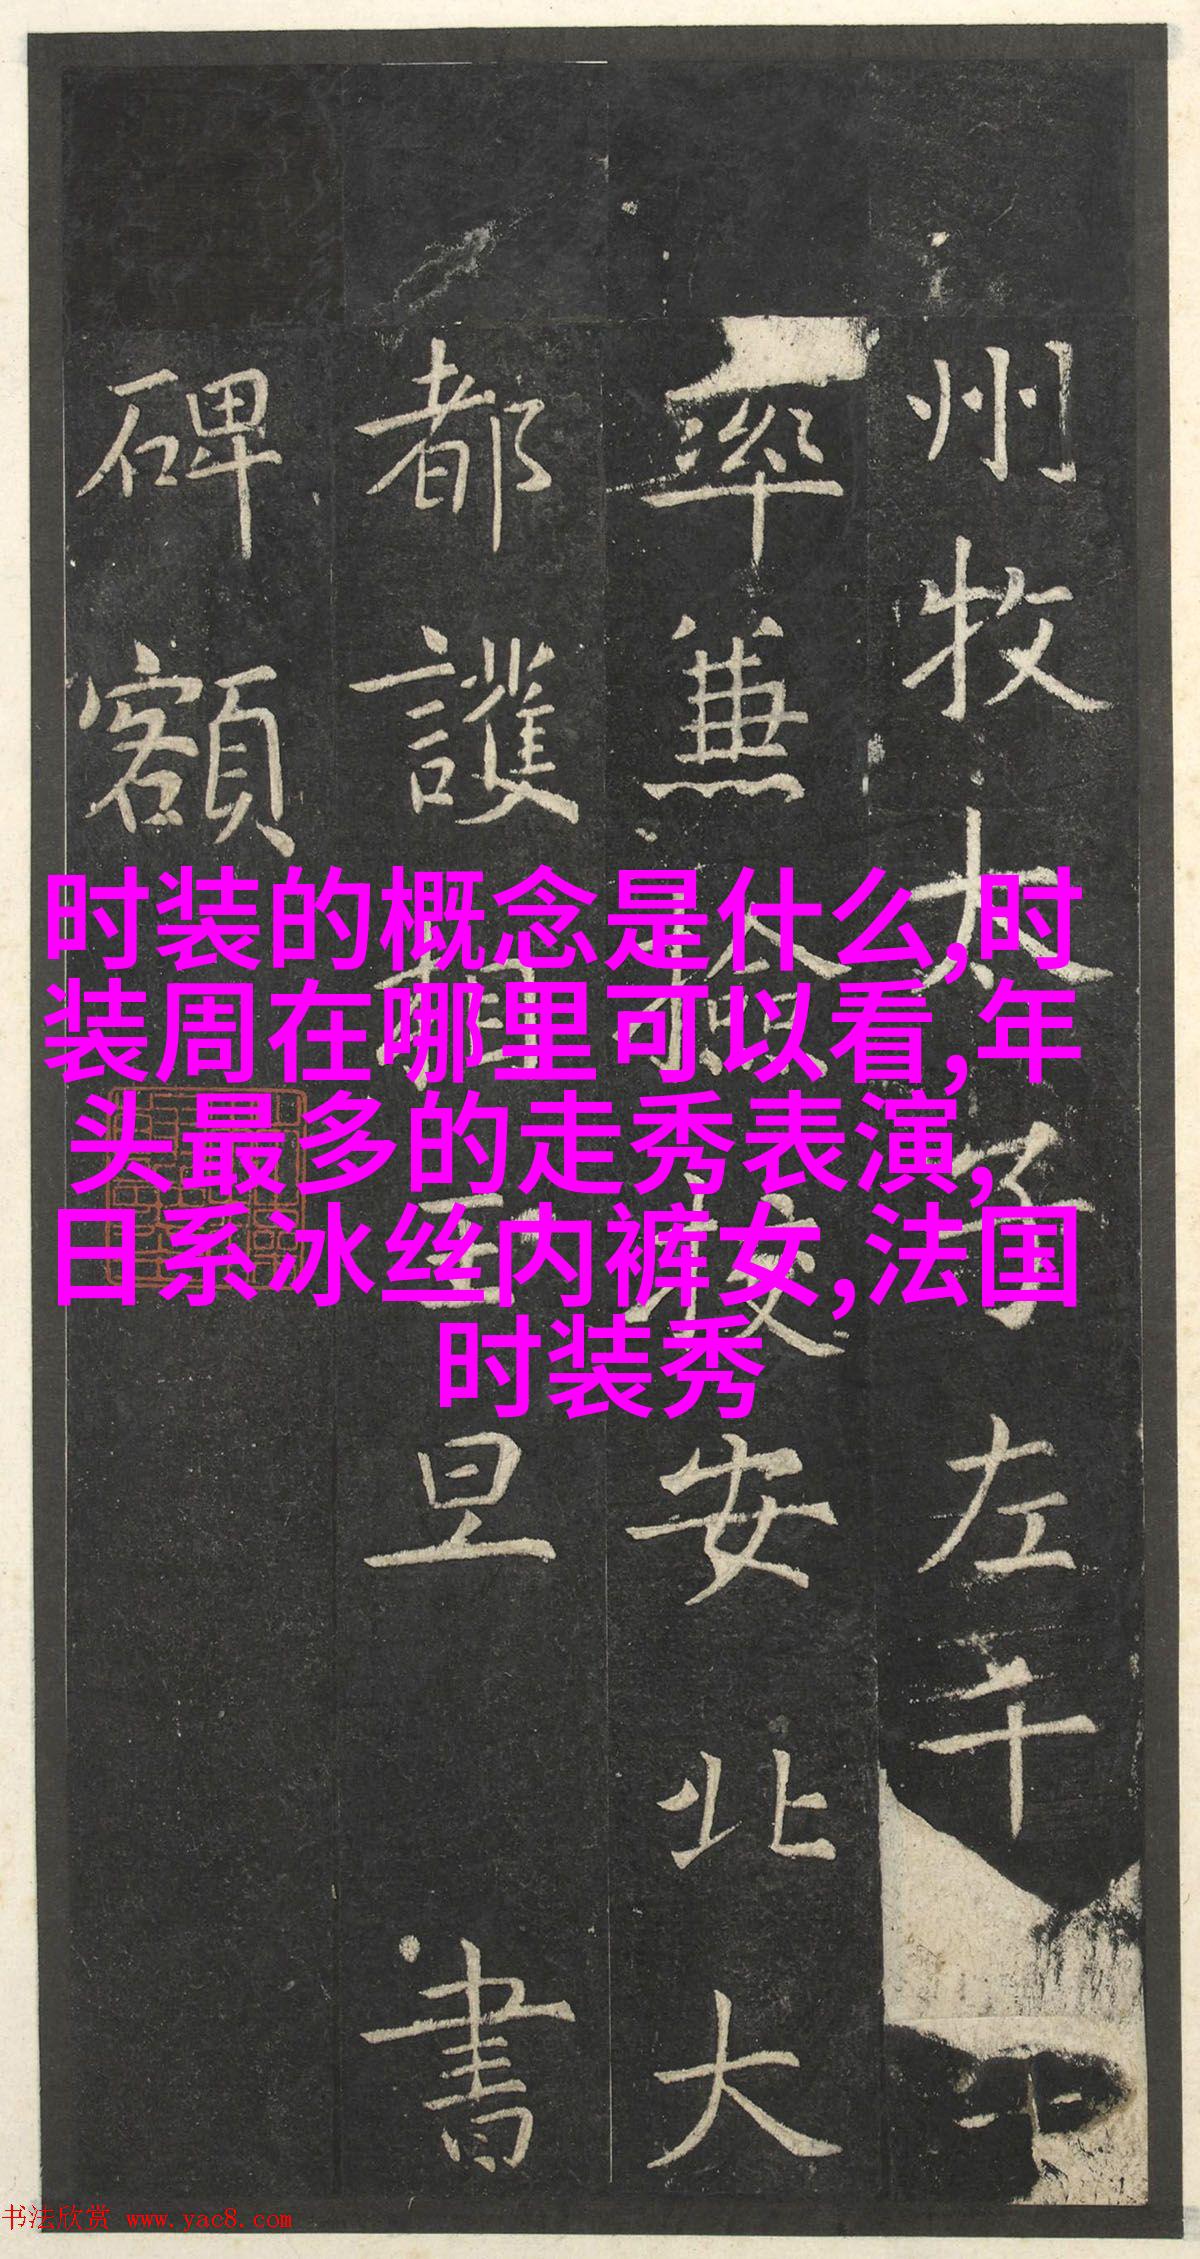 州牧太子左千
率兼檢校安北大
都護相王旦書
碑額
时装的概念是什么,时
装周在哪里可以看,年
头最多的走秀表演,
日系冰丝内裤女,法国
时装秀
书法欣赏 www.yac8.com